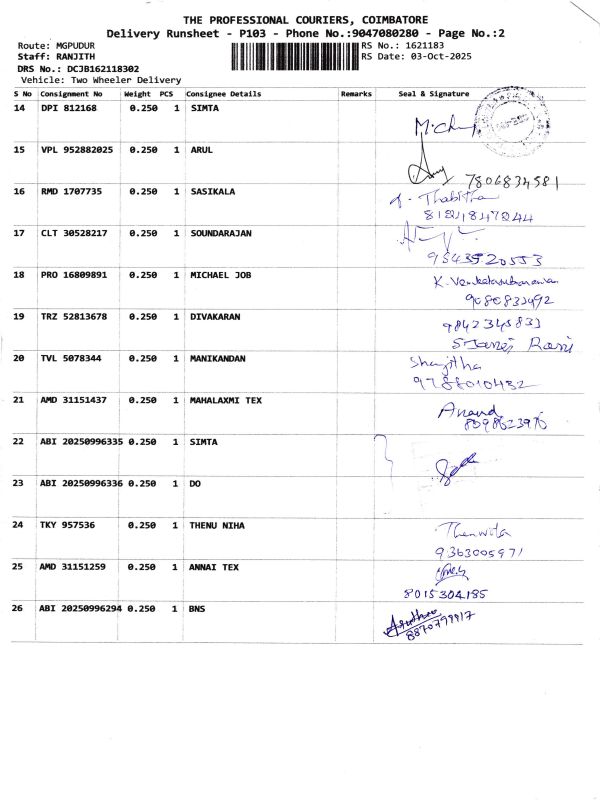 THE PROFESSIONAL COURIERS, COIMBATORE
Delivery Runsheet - P103 - Phone No.:9047080280 - Page No.:2
Route: MGPUDUR RS No.: 1621183
Staff: RANJITH RS Date: 03-Oct-2025
DRS No.: DCJB162118302
Vehicle: Two Wheeler Delivery
S No Consignment No Weight PCS Consignee Details Remarks Seal & Signature
14 DPI 812168 0.250 1 SIMTA
15 VPL 952882025 0.250 1 ARUL
7806834581
16 RMD 1707735 0.250 1 SASIKALA Thabitha
17 CLT 30528217 0.250 1 SOUNDARAJAN
9543520553
18 PRO 16809891 0.250 1 MICHAEL JOB
19 TRZ 52813678 0.250 1 DIVAKARAN 9842345833
20 TVL 5078344 0.250 1 MANIKANDAN
9788010432
21 AMD 31151437 0.250 1 MAHALAXMI TEX Anand
22 ABI 20250996335 0.250 1 SIMTA
23 ABI 20250996336 0.250 1 DO
24 TKY 957536 0.250 1 THENU NIHA
9363005971
25 AMD 31151259 0.250 1 ANNAI TEX
8015304185
26 ABI 20250996294 0.250 1 BNS